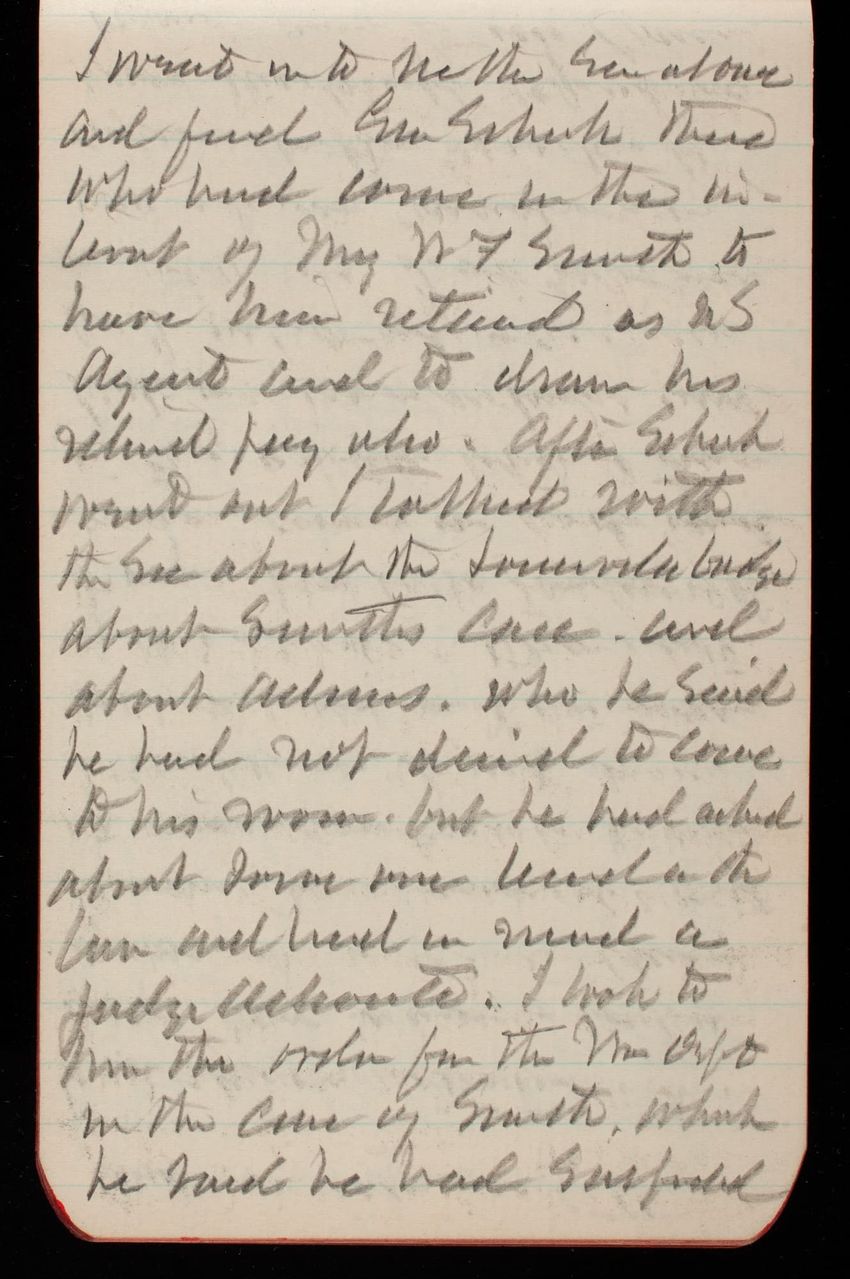 I went in to see the Sec alone
and found Gen Schenck there
who had come in the in-
terest of Maj W F Smith to
have him retained as US
Agent and to draw his
retired pay also. After Schenck
went out I talked with
the Sec about the Lodge
about Smiths case. and
about Adams. who he said
he had not desired to come
to his room. but he had asked
about some one learned in the
law and had in mind a
Judge. I took to
him the order from the War Dept
in the case of Smith, which
he said he had suspended